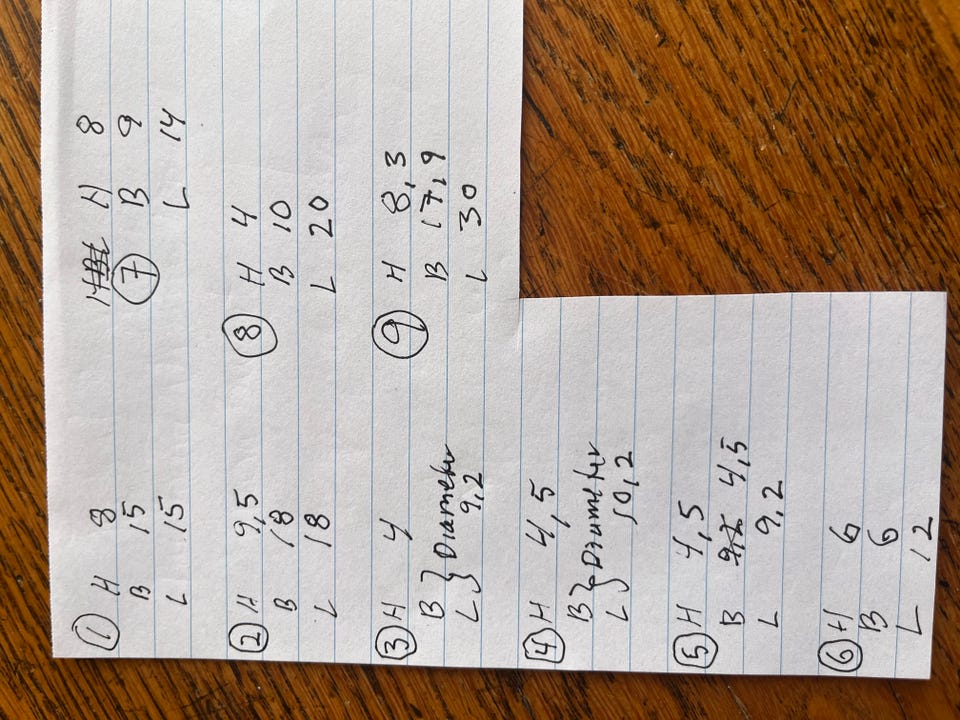 ① H 8
B 15
L 15
② H 9,5
B 18
L 18
③ H 4
B } Diameter
L } 9,2
④ H 4,5
B } Diameter
L } 10,2
⑤ H 4,5
B 4,5
L 9,2
⑥ H 6
B 6
L 12
H 8
⑦ B 9
L 14
⑧ H 4
B 10
L 20
⑨ H 8,3
B 17,9
L 30